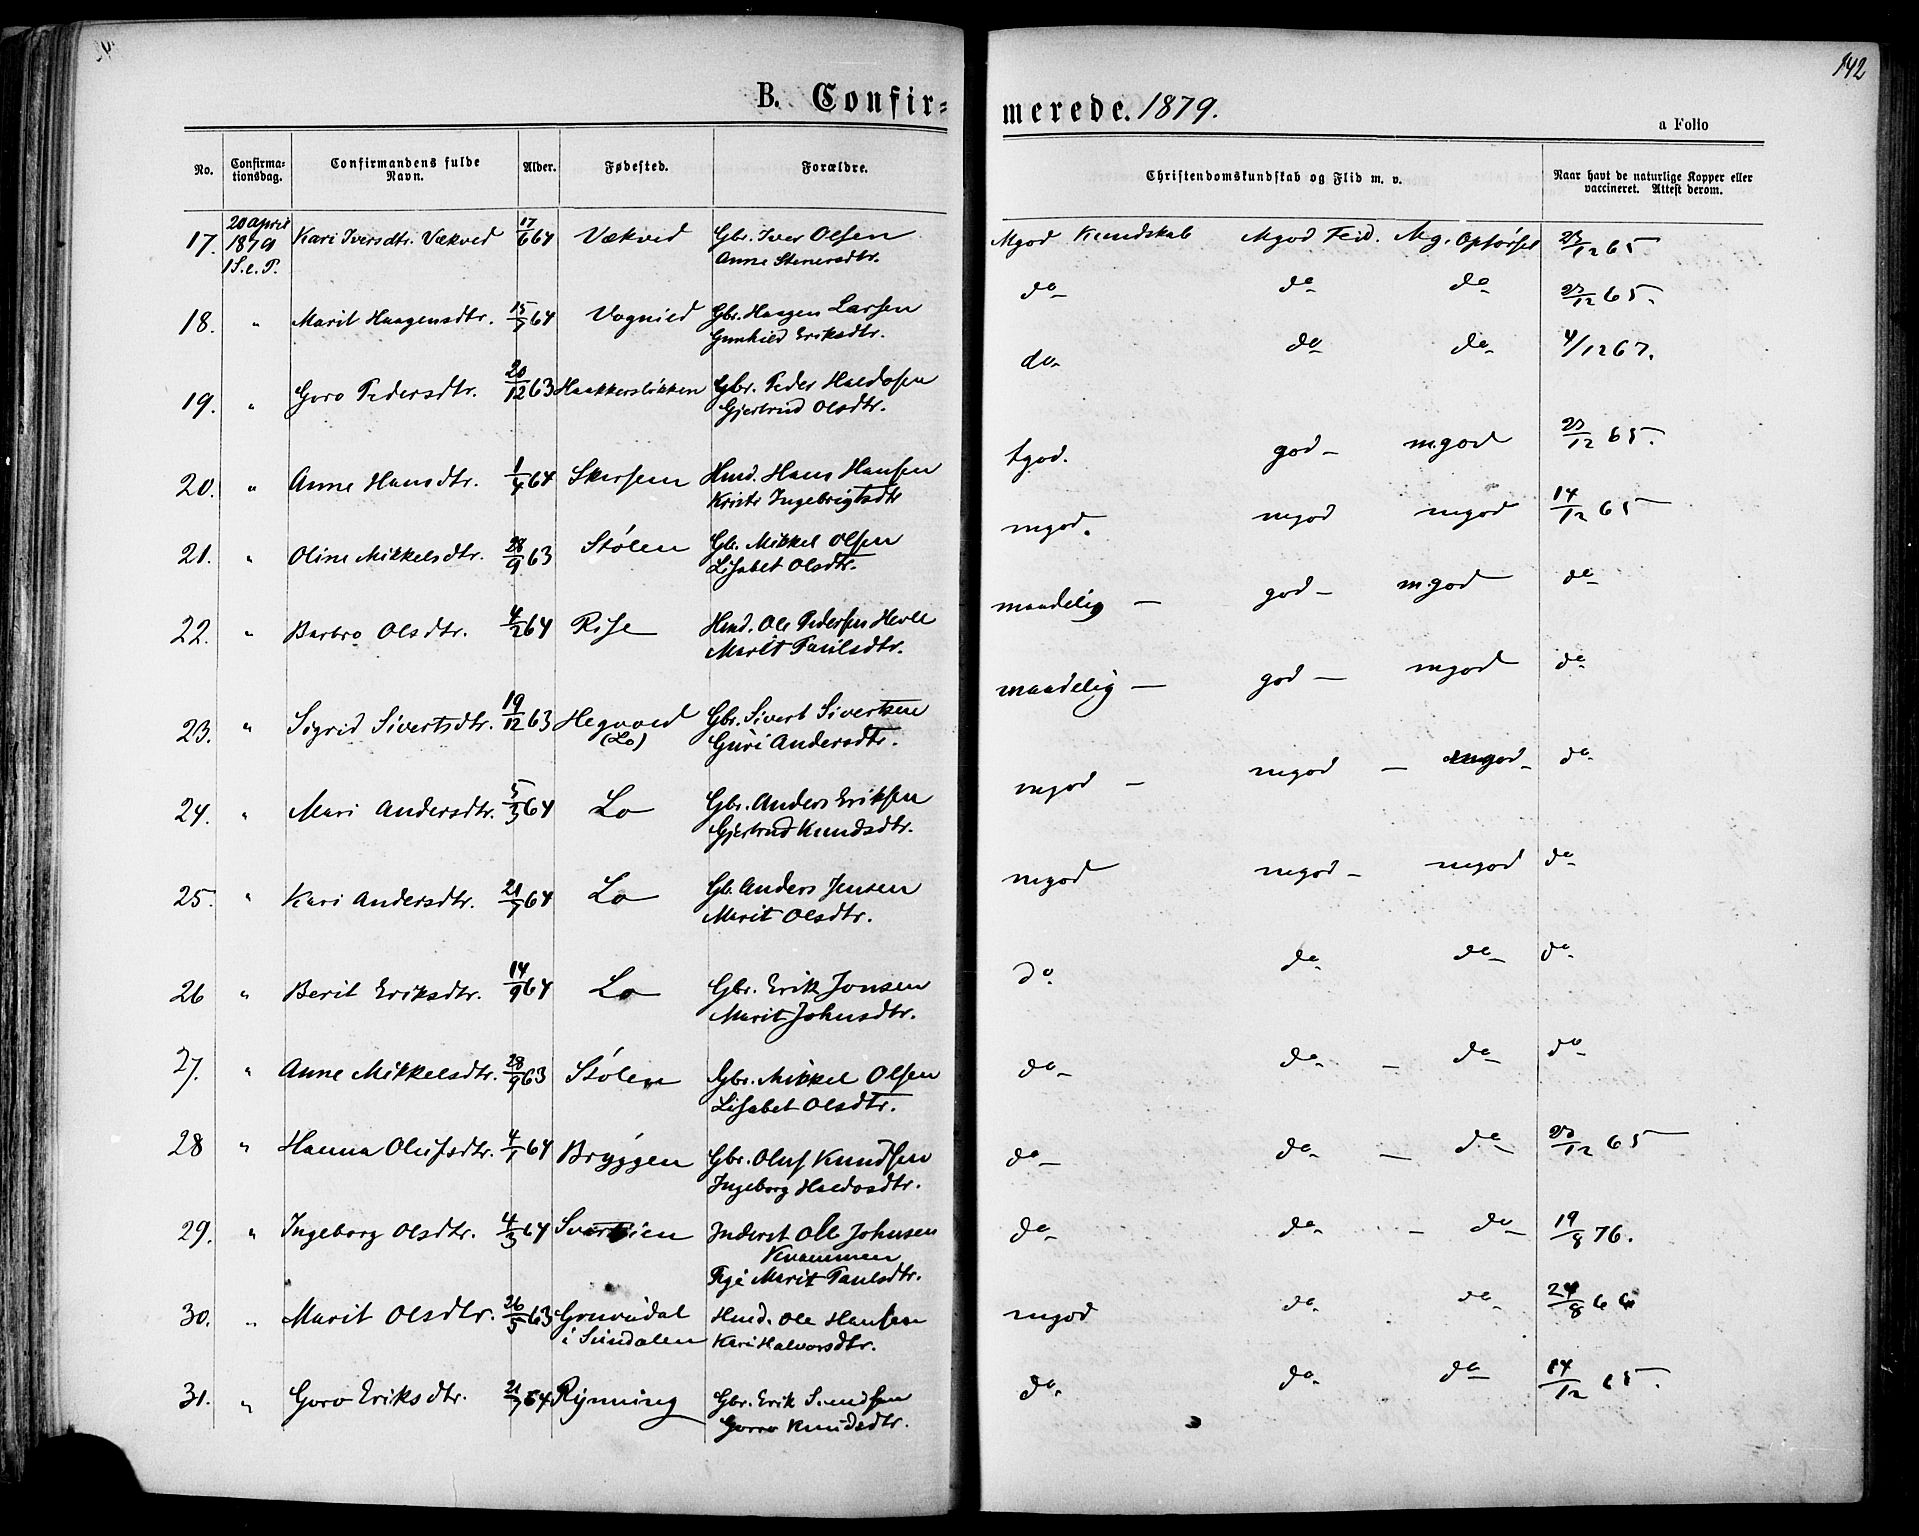 B. Confirmerede. 1879.
142
a Folio
No. Confirmationsdag. Confirmandens fulde Navn. Alder. Fødested. Forældre. Christendomskundskab og Flid m. v. Naar havt de naturlige Kopper eller vaccineret. Attest derom.
17. 20 April 1879 1 S. e. P. Kari Iversdtr. Vækved 17/6 64 Vækved Gbr. Iver Olsen Mgod Kundskab Mgod Flid. Mg. Opførsel 23/12 65
Anne Stenersdtr.
18. " Marit Haagensdtr. 15/7 64 Vognild Gbr. Haagen Larsen do- do- do- 23/12 65.
Gunhild Eriksdtr.
19. " Goro Pedersdtr. 20/12 63 Haakkersløkken Gbr. Peder Haldosen do- do- do- 4/12 67.
Gjertrud Olsdtr.
20. " Anne Hansdtr. 1/4 64 Hmd. Hans Hansen tgod. god- mgod 23/12 65.
Ingebrigtsdtr
21. " Oline Mikkelsdtr. 28/9 63 Stølen Gbr. Mikkel Olsen mgod. mgod mgod 14/12 65
Lisabet Olsdtr.
22. " Barbro Olsdtr. 4/2 64 Rise Hmd. Ole Pedersen Hevle maadelig - god- mgod do-
Marit Paulsdtr.
23. " Sigrid Sivertsdtr. 19/12 63 Hegvold (Lo) Gbr. Sivert Sivertsen maadelig - god - mgod do-
Guri Andersdtr.
24. " Mari Andersdtr. 5/3 64 Lo Gbr. Anders Eriksen mgod - mgod - mgod- do-
Gjertrud Knudsdtr.
25. " Kari Andersdtr. 21/7 64 Lo Gb. Anders Jensen mgod mgod- mgod do-
Marit Olsdtr.
26 " Berit Eriksdtr. 14/9 64 Lo Gbr. Erik Jonsen do- do- do- do-
Marit Johnsdtr.
27. " Anne Mikkelsdtr. 28/9 63 Stølen Gbr. Mikkel Olsen do- do- - do- do-
Lisabet Olsdtr.
28 " Hanna Olufsdtr. 4/1 64 Bryggen Gbr. Oluf Knudsen do- do- - do- 23/12 65
Ingeborg Haldosdtr.
29. " Ingeborg Olsdtr. 4/3 64 Inderst Ole Johnsen do- do- - do- 19/8 76.
Kvammen
Pige Marit Paulsdtr.
30. " Marit Olsdtr. 26/3 63 Grøvudal Hmd. Ole Hansen mgod do- do- 24/8 66
i Sundalen Kari Halvorsdtr.
31. " Goro Eriksdtr. 21/7 64 Rynning Gbr. Erik do- do- do- 14/12 65.
Gorro Knudsdtr.